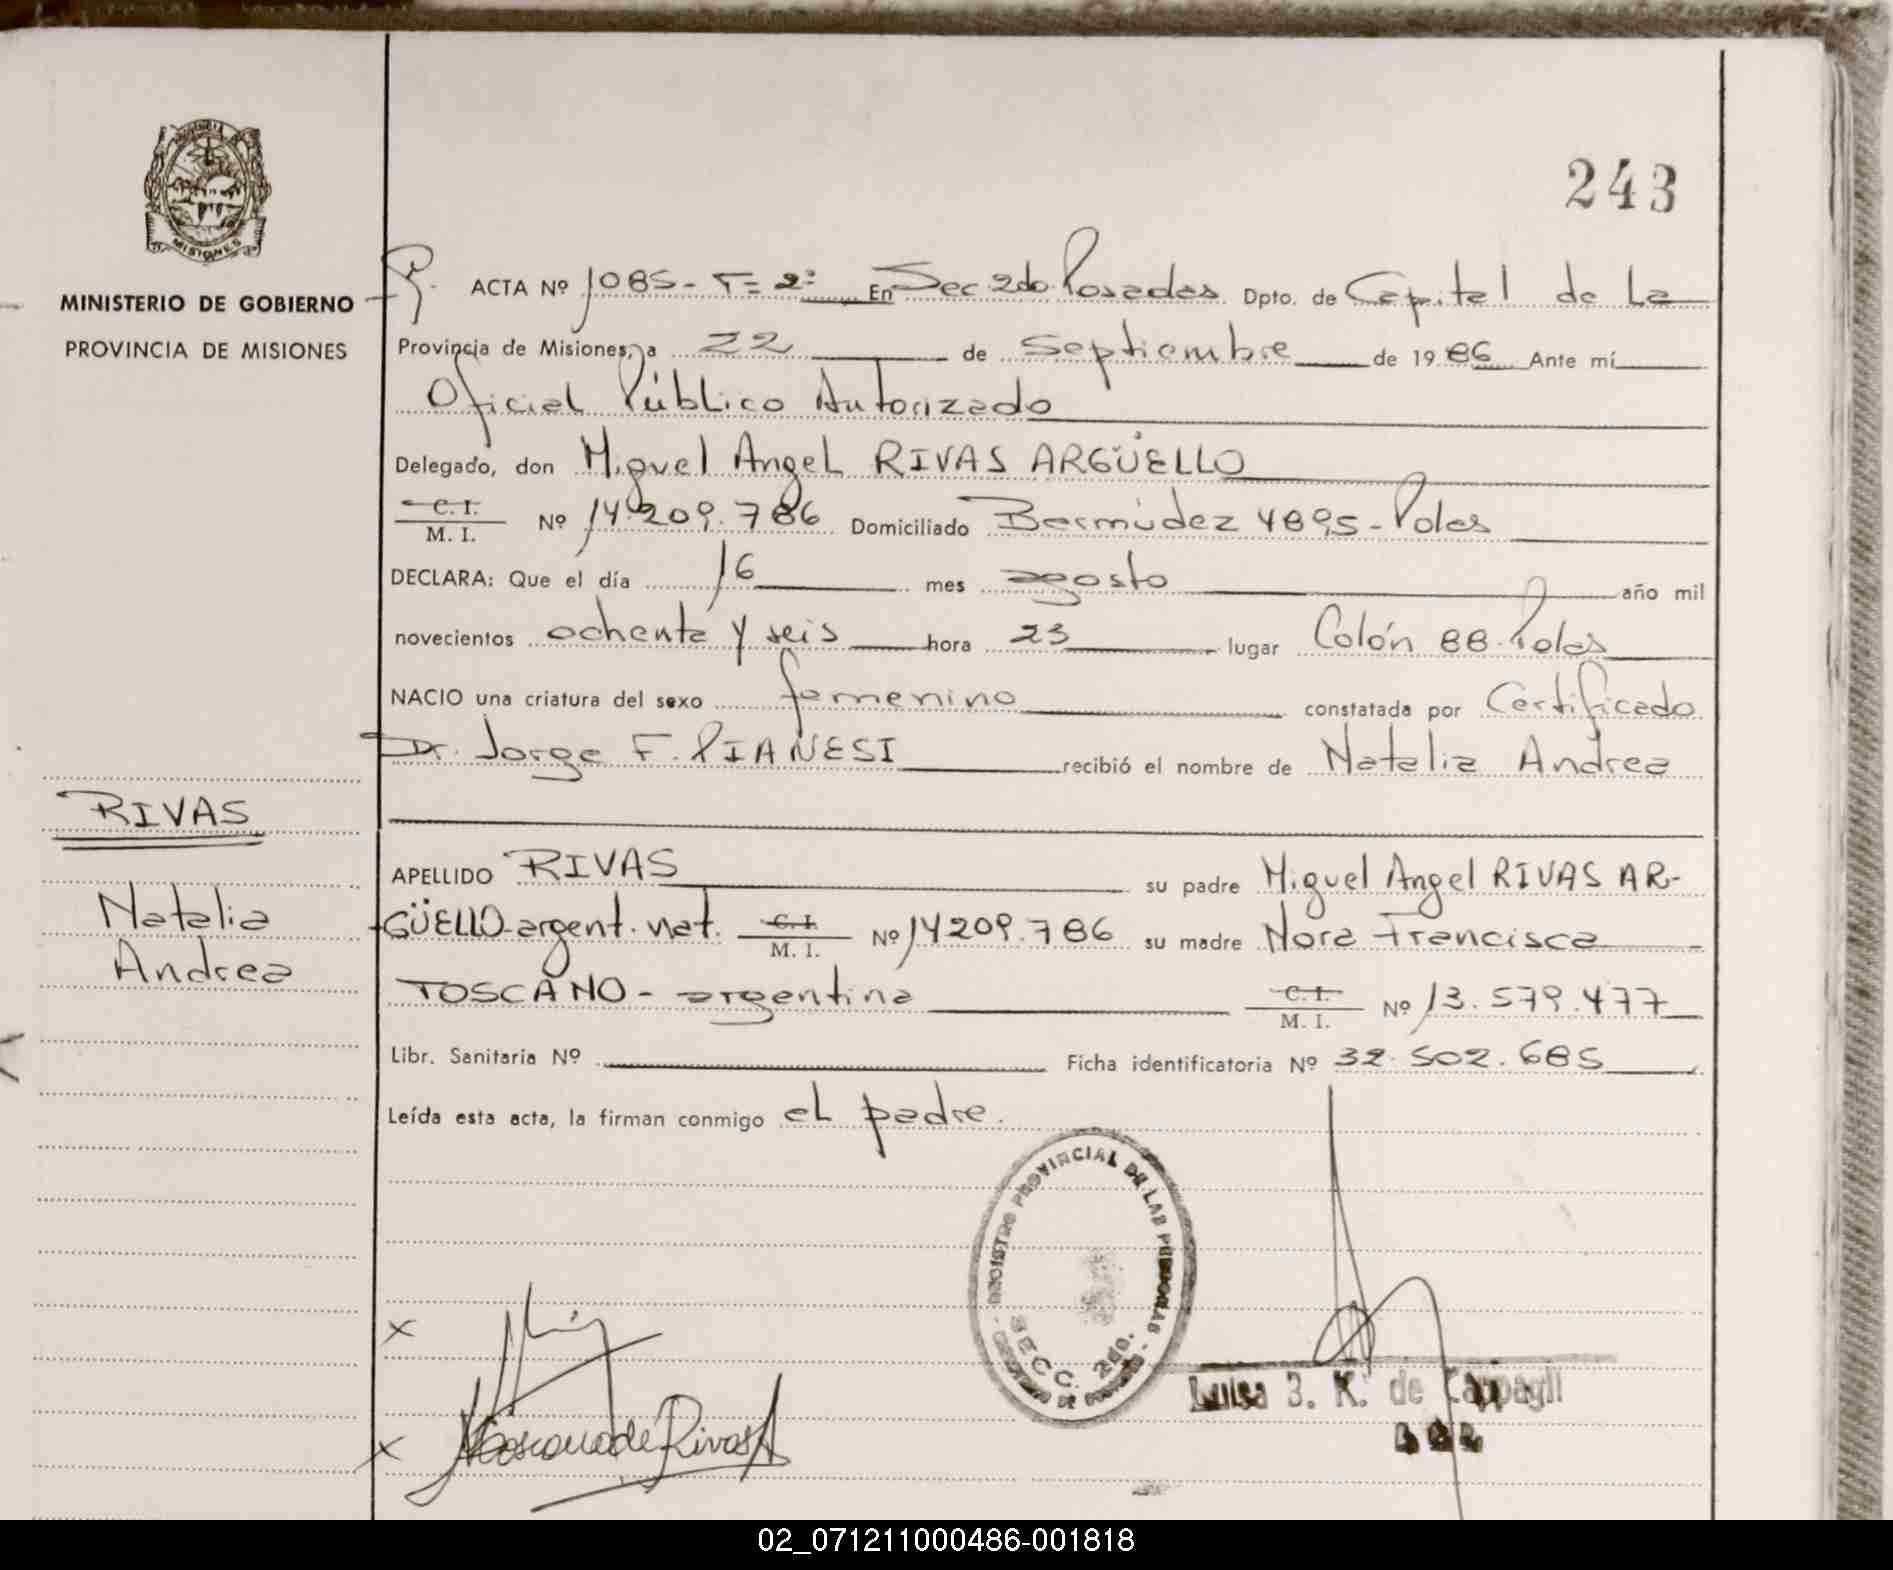 243
MISIONES
MINISTERIO DE GOBIERNO
PROVINCIA DE MISIONES
ACTA Nº 1085 - T= 2º En Sec 2do Posadas Dpto. de Capital de La
Provincia de Misiones, a 22 de Septiembre de 1986 Ante mí
Oficial Público Autorizado
Delegado, don Miguel Angel RIVAS ARGÜELLO
C. I.
M. I. Nº 14.209.786 Domiciliado Bermúdez 4895 - Pdas
DECLARA: Que el día 16 mes agosto año mil
novecientos ochenta y seis hora 23 lugar Colón 88 - Pdas
NACIO una criatura del sexo femenino constatada por Certificado
Dr. Jorge F. PIANESI recibió el nombre de Natalia Andrea
RIVAS
Natalia
Andrea
APELLIDO RIVAS su padre Miguel Angel RIVAS AR-
GÜELLO - argent. nat. C. I. M. I. Nº 14209.786 su madre Nora Francisca
TOSCANO - argentina C. I. M. I. Nº 13.579.477
Libr. Sanitaria Nº Ficha identificatoria Nº 32.502.685
Leída esta acta, la firman conmigo el padre.
REGISTRO PROVINCIAL DE LAS PERSONAS
SECC. 2da.
x
x
Toscano de Rivas A
Luisa B. K. de Cappagli
02_071211000486-001818